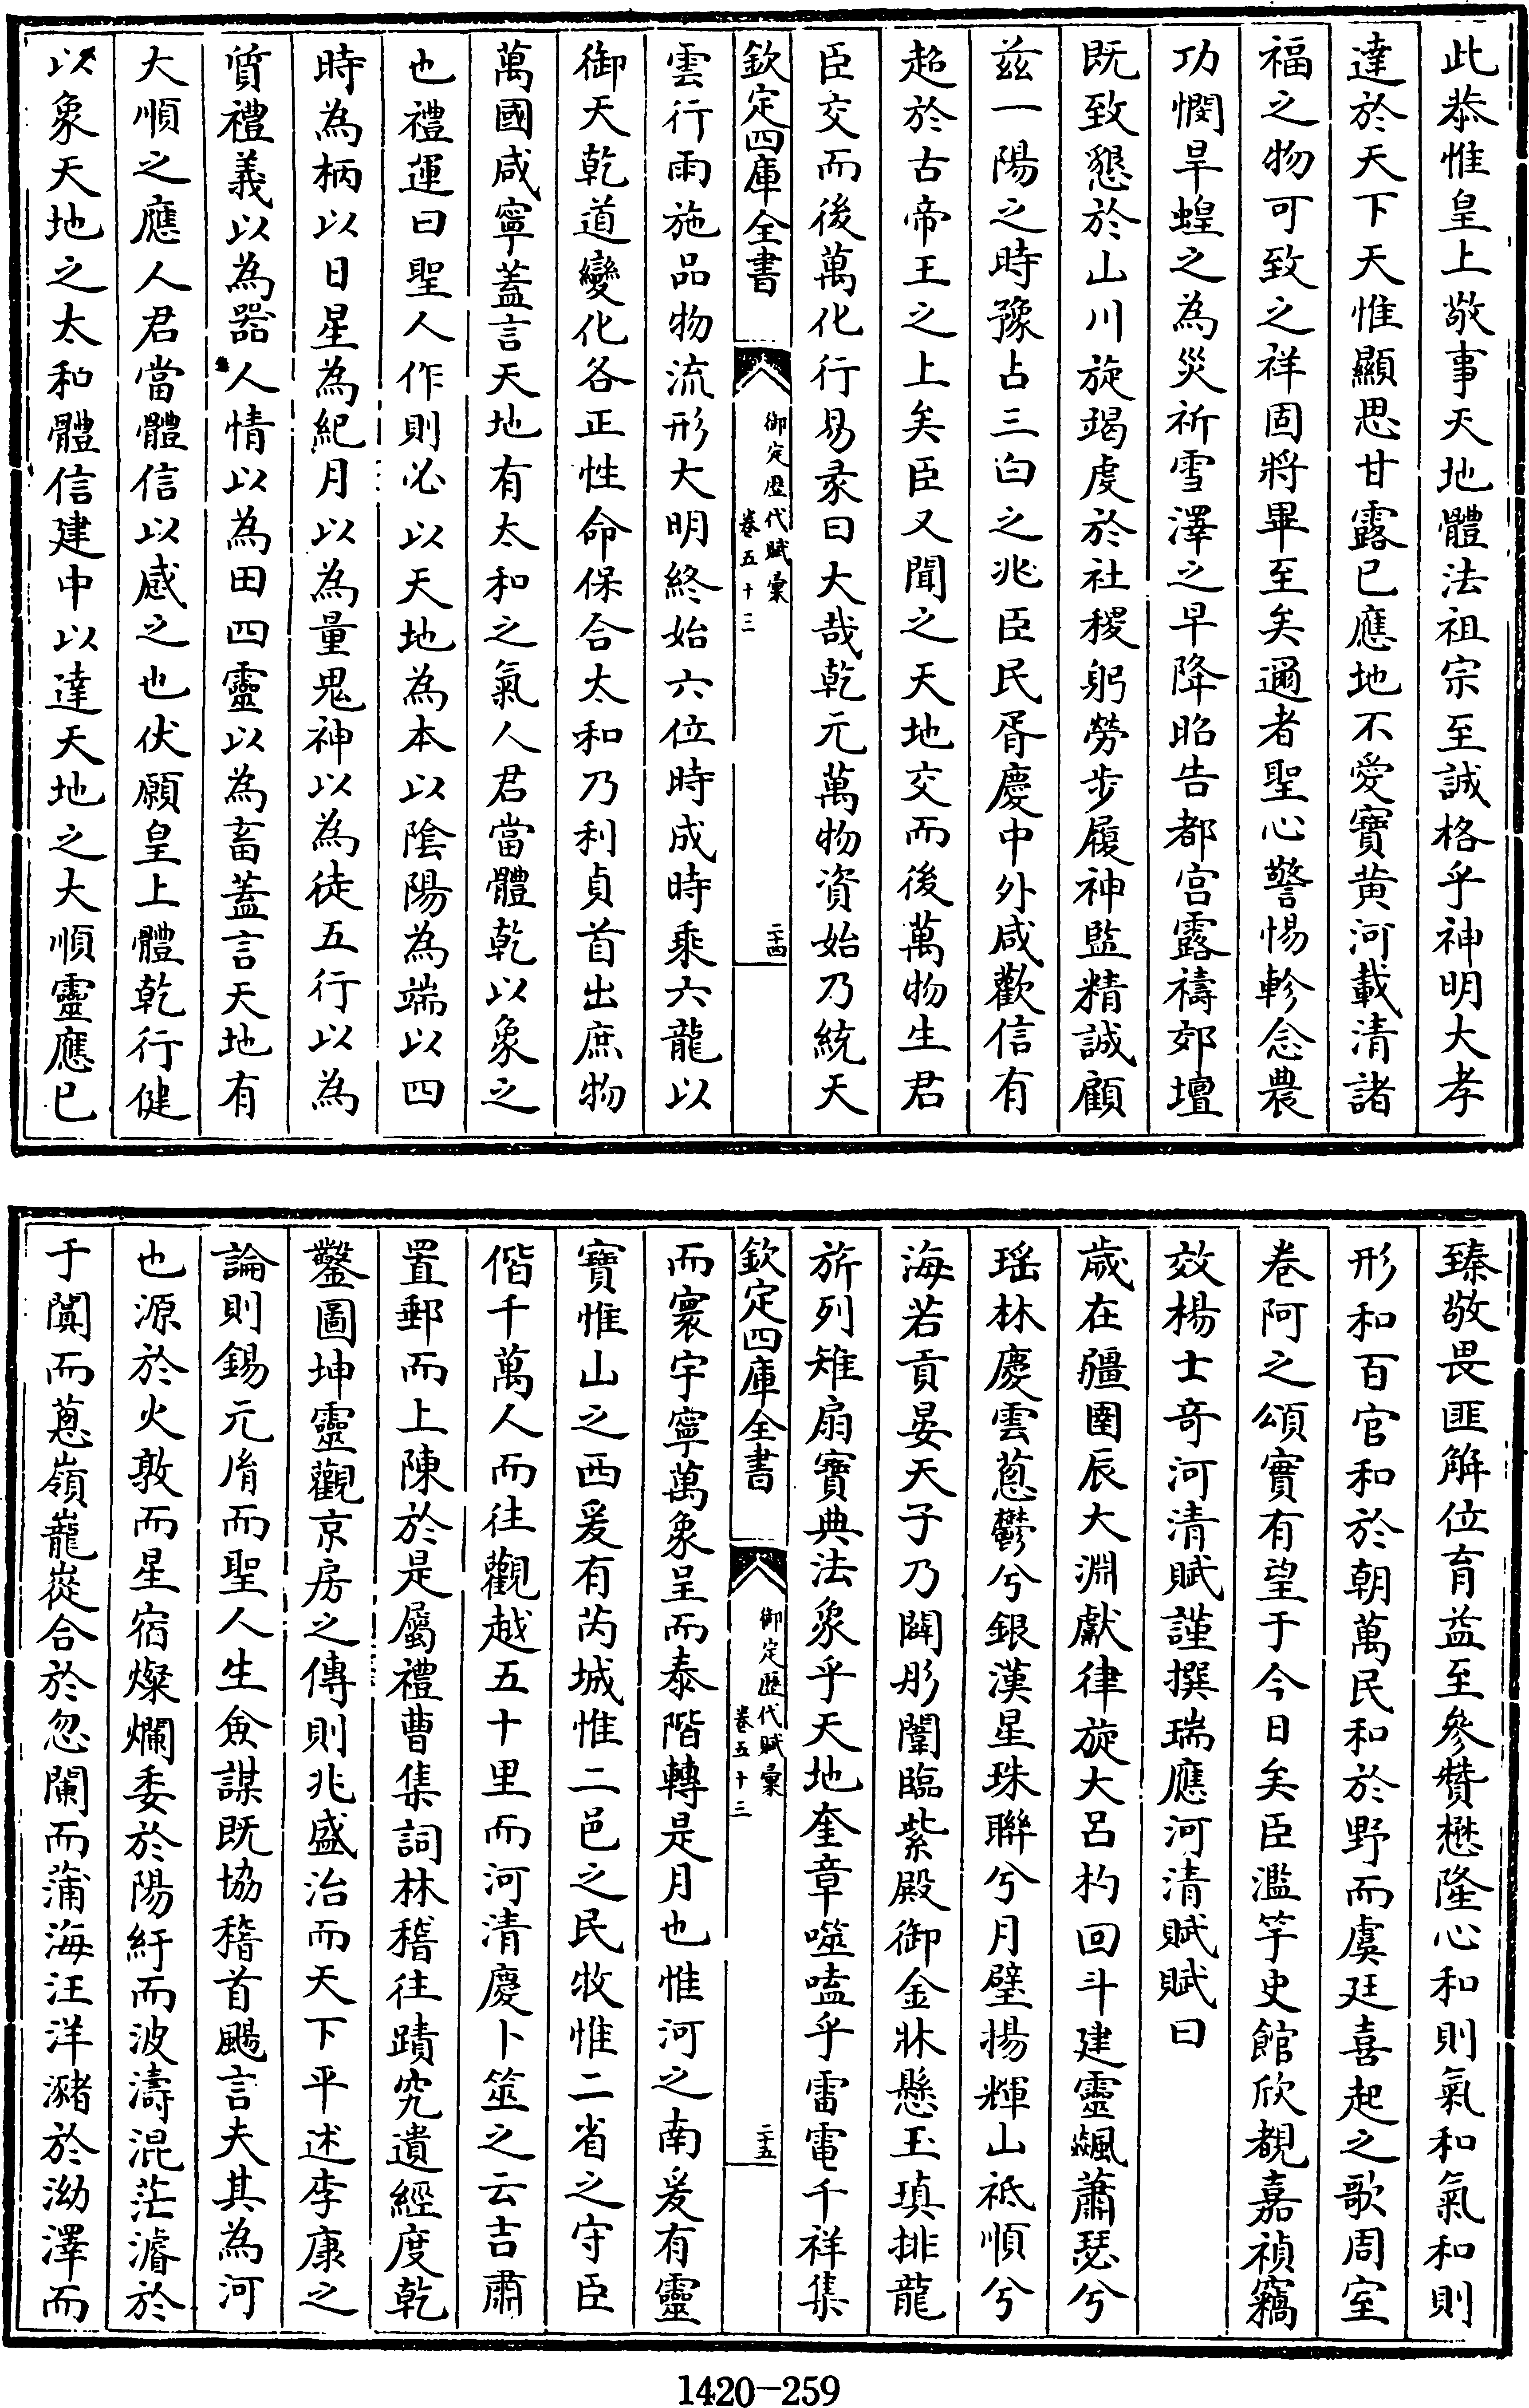 此恭惟皇上敬事天地體法祖宗至誠格乎神明大孝
達於天下天惟顯思甘露已應地不愛寶黄河載清諸
福之物可致之祥固將畢至矣邇者聖心警惕軫念農
功憫旱蝗之為災祈雪澤之早降昭告都宫露禱郊壇
既致懇於山川旋竭虔於社稷躬勞步履神監精誠顧
兹一陽之時豫占三白之兆臣民胥慶中外咸歡信有
超於古帝王之上矣臣又聞之天地交而後萬物生君
臣交而後萬化行易彖曰大哉乾元萬物資始乃統天
欽定四庫全書
御定歷代賦彙
卷五十三
二十四
雲行雨施品物流形大明終始六位時成時乘六龍以
御天乾道變化各正性命保合太和乃利貞首出庶物
萬國咸寧蓋言天地有太和之氣人君當體乾以象之
也禮運曰聖人作則必以天地為本以隂陽為端以四
時為柄以日星為紀月以為量鬼神以為徒五行以為
質禮義以為器人情以為田四靈以為畜蓋言天地有
大順之應人君當體信以感之也伏願皇上體乾行健
以象天地之太和體信建中以達天地之大順靈應已
臻敬畏匪解位育益至參贊懋隆心和則氣和氣和則
形和百官和於朝萬民和於野而虞廷喜起之歌周室
卷阿之頌實有望于今日矣臣濫竽史館欣覩嘉禎竊
效楊士竒河清賦謹撰瑞應河清賦賦曰
歳在疆圉辰大淵獻律旋大吕杓回斗建靈飈蕭瑟兮
瑶林慶雲蔥鬱兮銀漢星珠聯兮月璧揚輝山祗順兮
海若貢晏天子乃闢彤闈臨紫殿御金牀懸玉瑱排龍
旂列雉扇寶典法象乎天地奎章噬嗑乎雷電千祥集
欽定四庫全書
御定歷代賦彙
卷五十三
二十五
而寰宇寧萬象呈而泰階轉是月也惟河之南爰有靈
寶惟山之西爰有芮城惟二邑之民牧惟二省之守臣
偕千萬人而往觀越五十里而河清慶卜筮之云吉肅
置郵而上陳於是屬禮曹集詞林稽往蹟究遺經度乾
鑿圖坤靈觀京房之傳則兆盛治而天下平述李康之
論則錫元胤而聖人生僉謀既協稽首颺言夫其為河
也源於火敦而星宿燦爛委於陽紆而波濤混茫濬於
于闐而蔥嶺巃嵸合於忽闌而蒲海汪洋瀦於泑澤而
1420-259